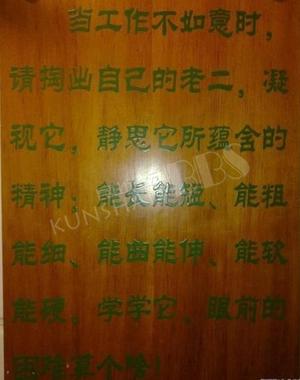 当工作不如意时，
请掏出自己的老二，凝
视它，静思它所蕴含的
精神：能长能短、能粗
能细、能曲能伸、能软
能硬。学学它，眼前的
困难算个啥！
KUNSHAN BBS